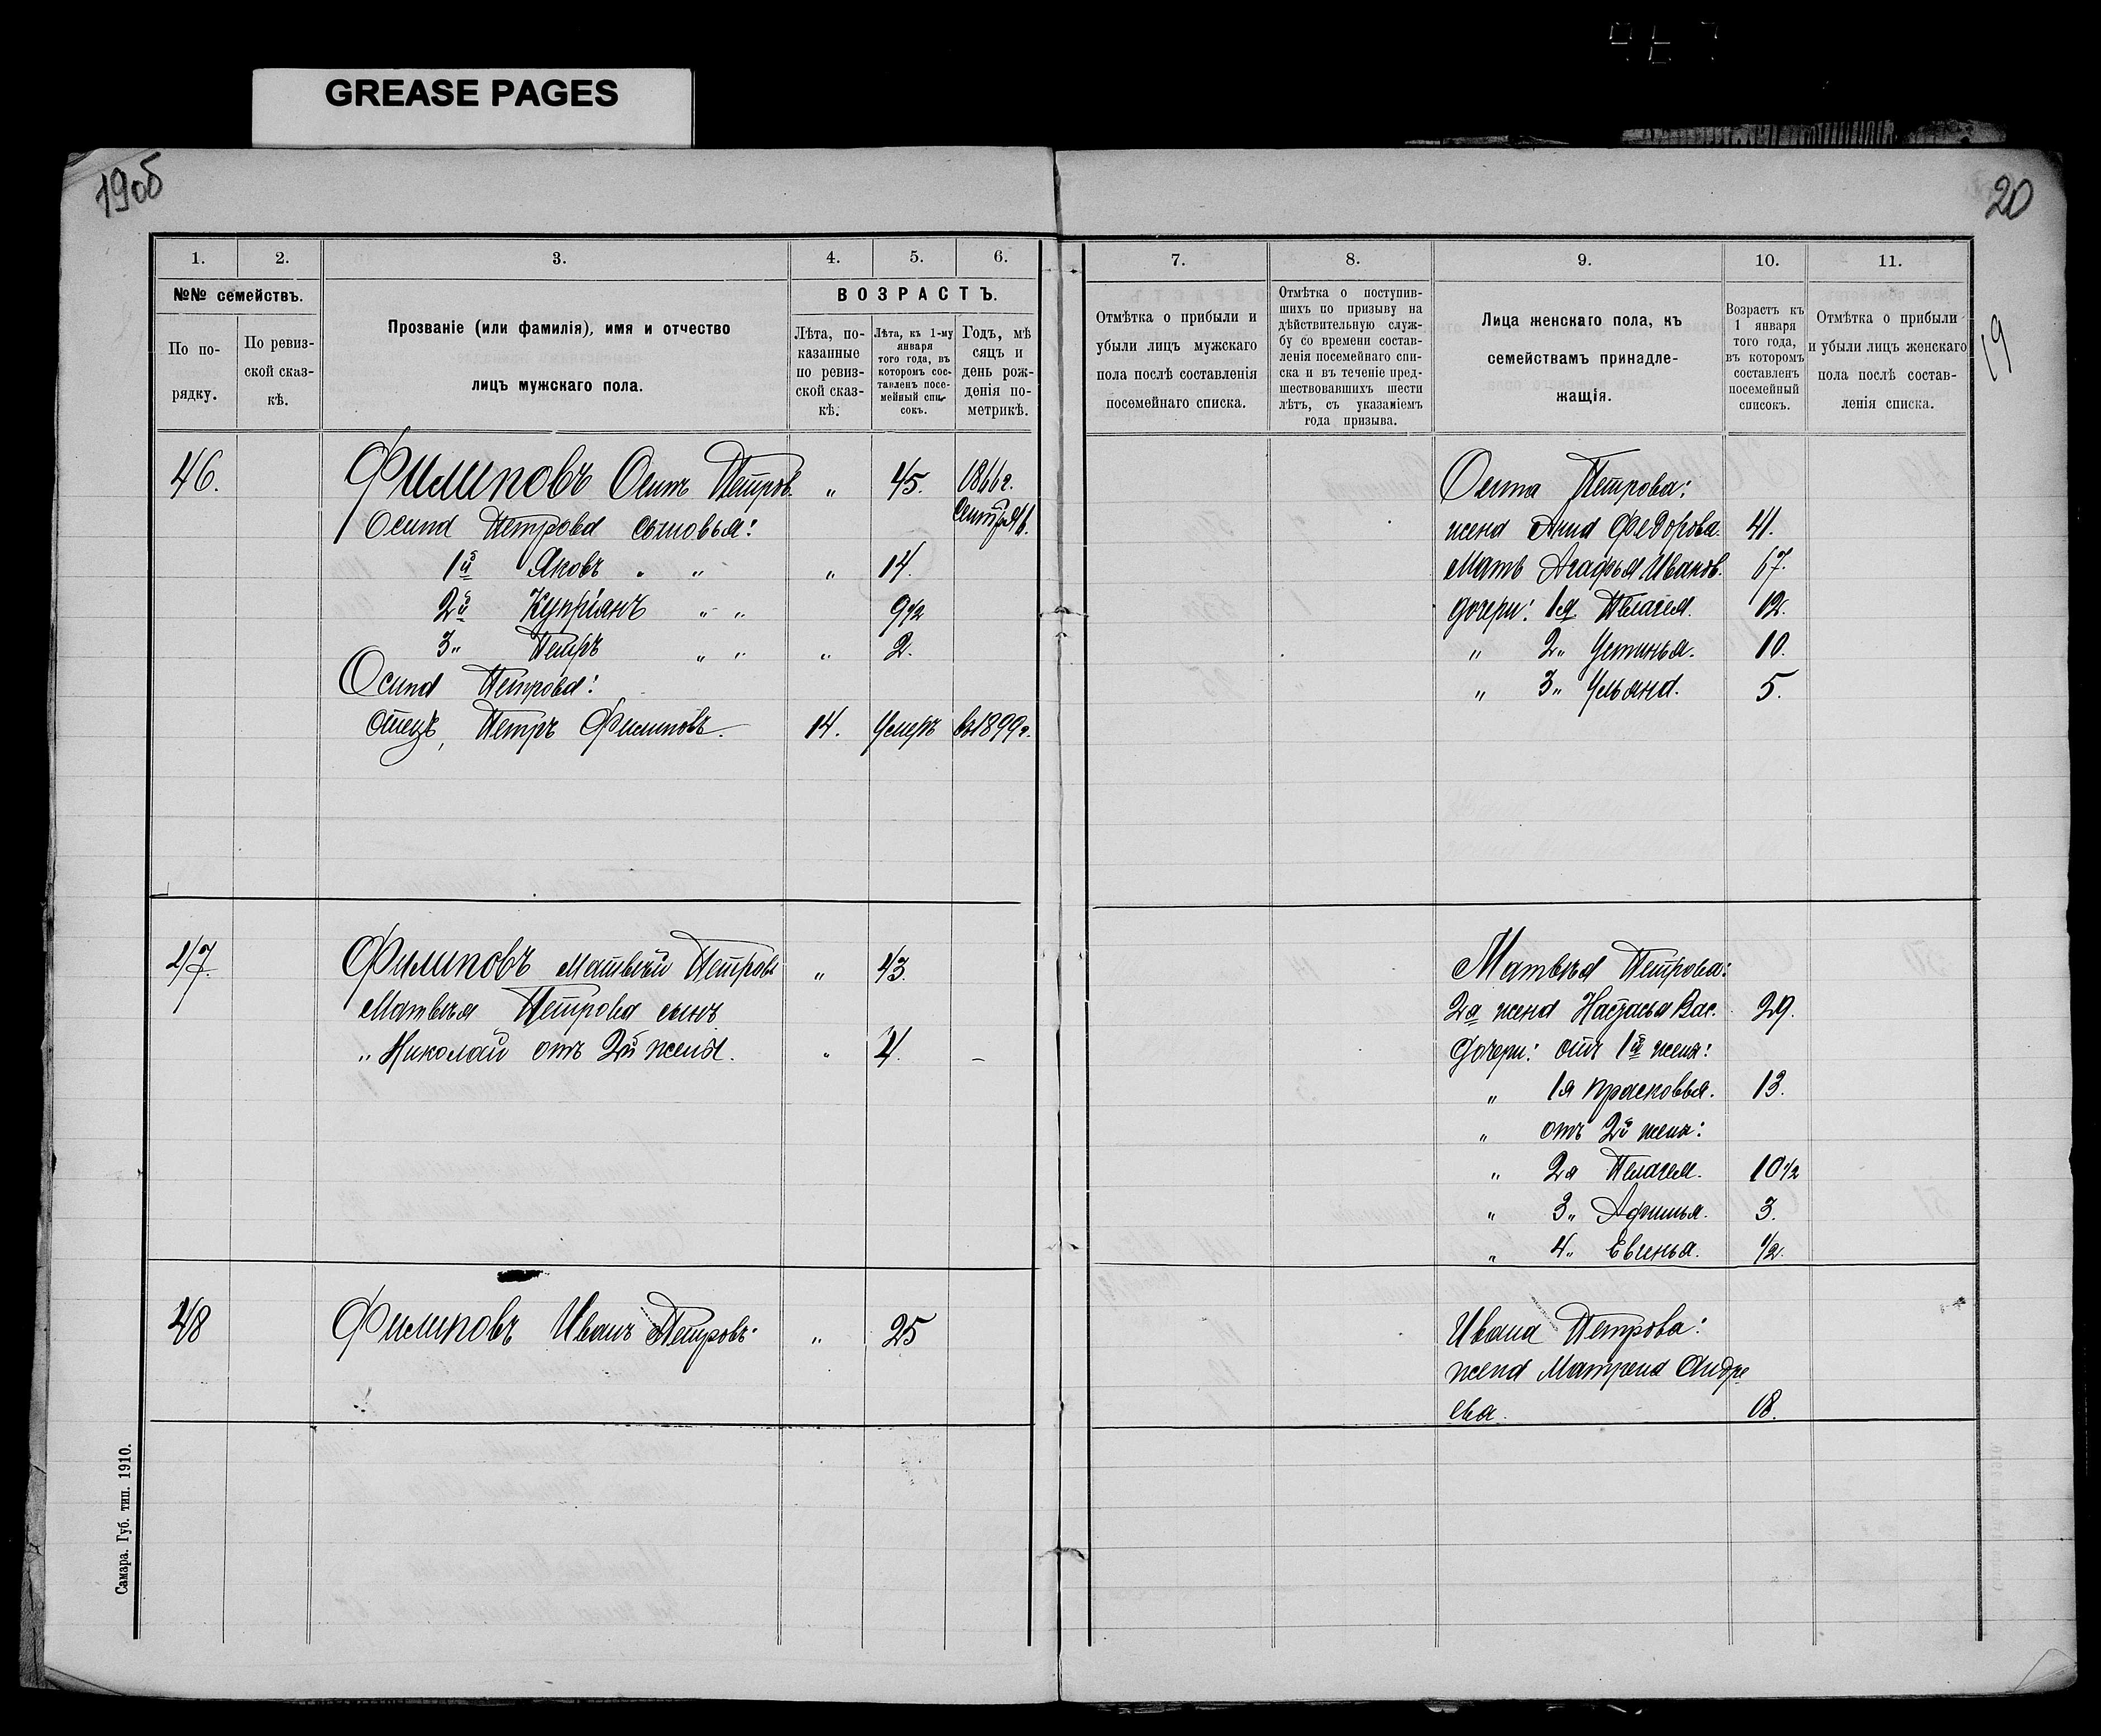 GREASE PAGES
1906
20
19
1.
2.
3.
4.
5.
6.
№№ семействъ.
По по-
рядку.
По ревиз-
ской сказ-
кѣ.
Прозваніе (или фамилія), имя и отчество
лицъ мужскаго пола.
ВОЗРАСТЪ.
Лѣта, по-
казанные
по ревиз-
ской сказ-
кѣ.
Лѣта, къ 1-му
января
того года, въ
которомъ сос-
тавленъ посе-
мейный спи-
сокъ.
Годъ, мѣ
сяцъ и
день рож-
денія по-
метрикѣ.
46. Филиповъ Осипъ Петров. „ 45. 1866г.
Осипа Петрова сыновья:
1й Яковъ „ „ „ 14.
2й Купріянъ „ „ 9 1/2
3„ Петръ „ „ „ 2.
Осипа Петрова:
отецъ, Петръ Филиповъ. 14. Умеръ въ 1899г.
47. Филиповъ Матвѣй Петровъ „ 43.
Матвѣя Петрова сынъ
„ Николай отъ 2й жены. „ 4. –
48 Филиповъ Иванъ Петровъ „ 25
Самара. Губ. тип. 1910.
7.
8.
9.
10.
11.
Отмѣтка о прибыли и
убыли лицъ мужскаго
пола послѣ составленія
посемейнаго списка.
Отмѣтка о поступив-
шихъ по призыву на
дѣйствительную служ-
бу со времени состав-
ленія посемейнаго спи-
ска и въ теченіе пред-
шествовавшихъ шести
лѣтъ, съ указаніемъ
года призыва.
Лица женскаго пола, къ
семействамъ принадле-
жащія.
Возрастъ къ
1 января
того года,
въ которомъ
составленъ
посемейный
списокъ.
Отмѣтка о прибыли
и убыли лицъ женскаго
пола послѣ состав-
ленія списка.
Осипа Петрова:
жена Анна Федорова. 41.
Мать Агафья Иванов. 67.
дочери: 1я Пелагея. 12.
„ 2„ Устинья. 10.
„ 3„ Ульяна. 5.
Матвѣя Петрова:
2я жена Наталья Вас. 29.
Дочери: отъ 1й жены:
„ 1я Прасковья. 13.
„ отъ 2й жены:
„ 2я Пелагея. 10 1/2
„ 3„ Афимья. 3.
„ 4„ Евгенья. 1/2.
Ивана Петрова:
жена Матрена Андре
ева. 18.